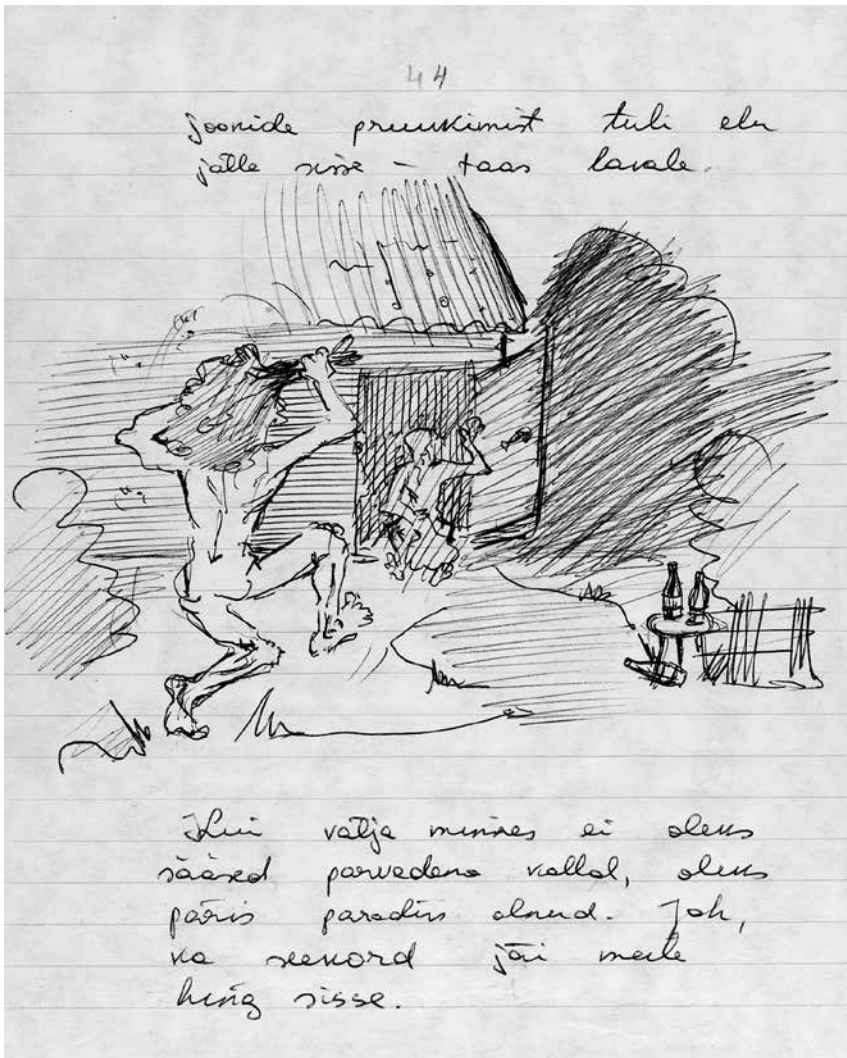 44
joonide pruukimist tuli elu
jälle sisse – taas lavale.
Kui välja minnes ei oleks
sääsed parvedena kallal, oleks
päris paradiis olnud. Jah,
ka seekord jäi meile
hing sisse.